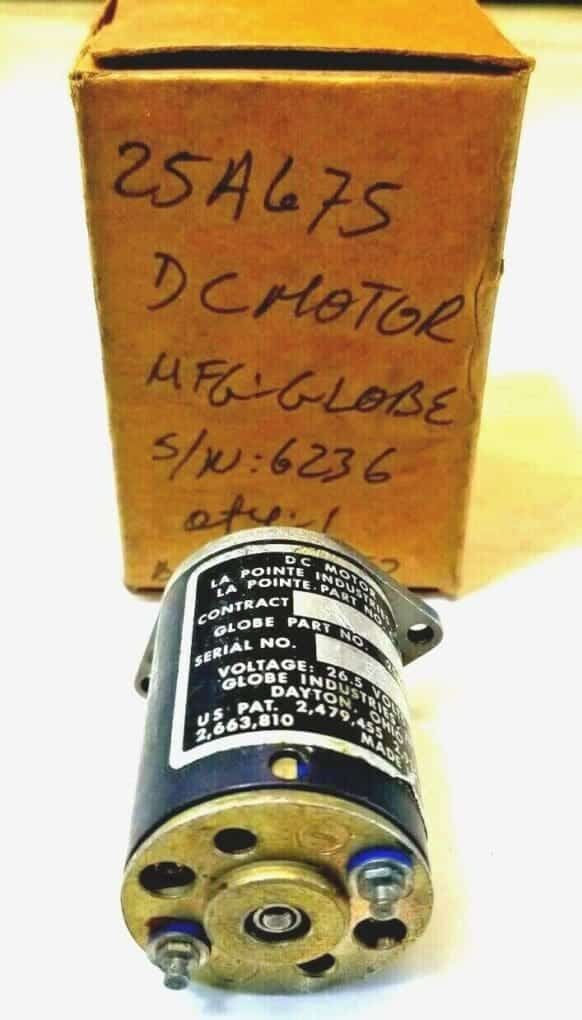 25A675
DC MOTOR
MFG: GLOBE
S/N: 6236
qty: 1
DC MOTOR
LA POINTE INDUSTRIES
LA POINTE PART NO.
CONTRACT
GLOBE PART NO.
SERIAL NO.
VOLTAGE: 26.5 VOLT
GLOBE INDUSTRIES
DAYTON, OHIO
US PAT. 2,479,455
2,663,810
MADE